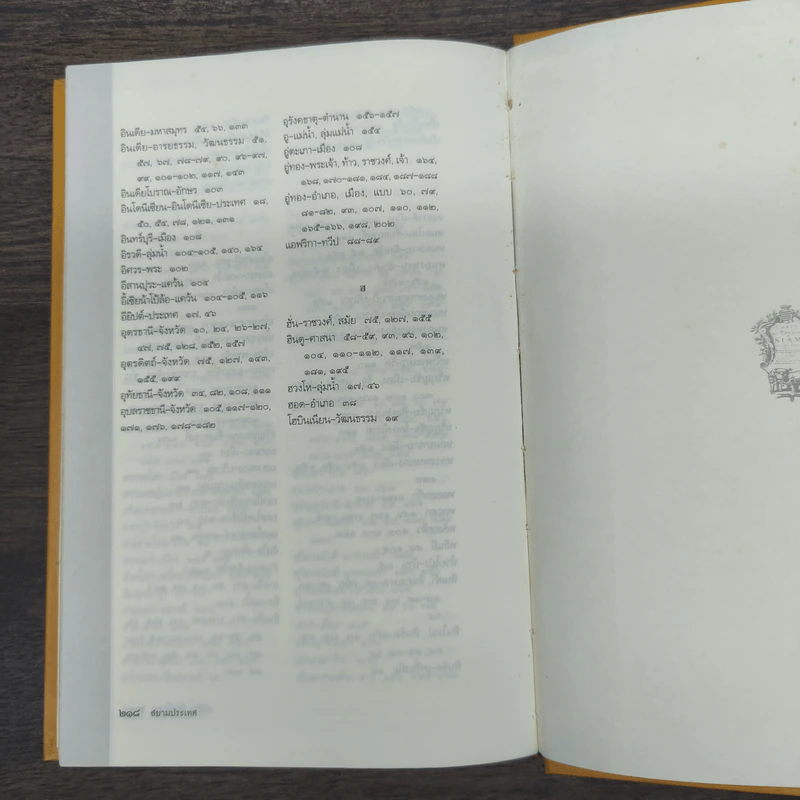 อินเดีย-มหาสมุทร ๕๔, ๖๖, ๑๓๓
อินเดีย-อารยธรรม, วัฒนธรรม ๕๑,
๕๗, ๖๗, ๗๘-๗๙, ๙๐, ๙๖-๙๗,
๙๙, ๑๐๑-๑๐๒, ๑๑๗, ๑๔๓
อินเดียโบราณ-อักษร ๑๐๓
อินโดนีเซียน-อินโดนีเซีย-ประเทศ ๑๘,
๕๐, ๕๔, ๗๘, ๑๒๑, ๑๓๑
อินทร์บุรี-เมือง ๑๐๘
อิรวดี-ลุ่มน้ำ ๑๐๔-๑๐๕, ๑๔๐, ๑๖๔
อิศวร-พระ ๑๐๒
อีสานปุระ-แคว้น ๑๐๔
อี้เซียน้าโป้ล้อ-แคว้น ๑๐๔-๑๐๕, ๑๑๖
อียิปต์-ประเทศ ๑๗, ๔๖
อุดรธานี-จังหวัด ๑๐, ๒๔, ๒๖-๒๗,
๔๗, ๗๕, ๑๒๘, ๑๕๒, ๑๕๗
อุตรดิตถ์-จังหวัด ๗๕, ๑๒๗, ๑๔๓,
๑๕๕, ๑๙๙
อุทัยธานี-จังหวัด ๓๔, ๘๒, ๑๐๘, ๑๑๑
อุบลราชธานี-จังหวัด ๑๐๕, ๑๑๗-๑๒๐,
๑๗๑, ๑๗๖, ๑๗๘-๑๘๒
อุรังคธาตุ-ตำนาน ๑๕๖-๑๕๗
อู-แม่น้ำ, ลุ่มแม่น้ำ ๑๕๔
อู่ตะเภา-เมือง ๑๐๘
อู่ทอง-พระเจ้า, ท้าว, ราชวงศ์, เจ้า ๑๖๔,
๑๖๘, ๑๗๐-๑๘๑, ๑๘๔, ๑๘๗-๑๘๘
อู่ทอง-อำเภอ, เมือง, แบบ ๖๐, ๗๙,
๘๑-๘๒, ๙๓, ๑๐๗, ๑๑๐, ๑๑๒,
๑๖๕-๑๖๖, ๑๙๘, ๒๐๒
แอฟริกา-ทวีป ๘๘-๘๙
ฮ
ฮั่น-ราชวงศ์, สมัย ๗๕, ๑๒๗, ๑๕๕
ฮินดู-ศาสนา ๕๘-๕๙, ๙๓, ๙๖, ๑๐๒,
๑๐๔, ๑๑๐-๑๑๒, ๑๑๗, ๑๓๙,
๑๘๑, ๑๙๕
ฮวงโห-ลุ่มน้ำ ๑๗, ๔๖
ฮอด-อำเภอ ๓๘
โฮบินเนียน-วัฒนธรรม ๑๙
๒๑๘ สยามประเทศ